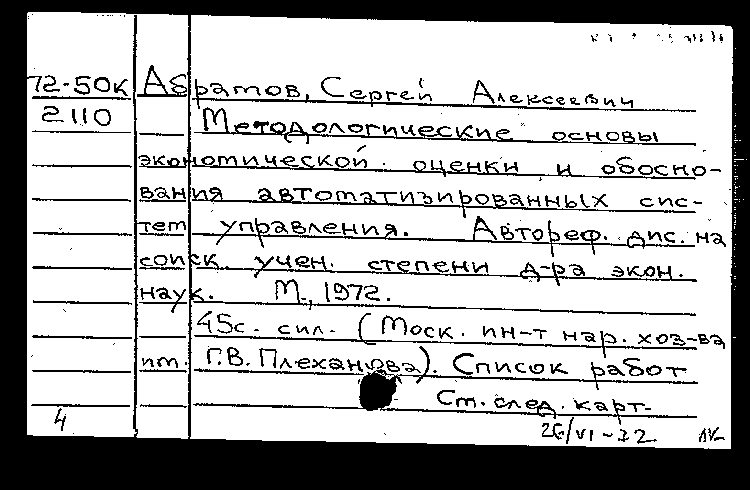 72-50к Абрамов, Сергей Алексеевич
2110 Методологические основы
экономической оценки и обосно-
вания автоматизированных сис-
тем управления. Автореф. дис. на
соиск. учен. степени д-ра экон.
наук. М., 1972.
45с. с ил. (Моск. ин-т нар. хоз-ва
им. Г.В. Плеханова). Список работ
См. след. карт.
4